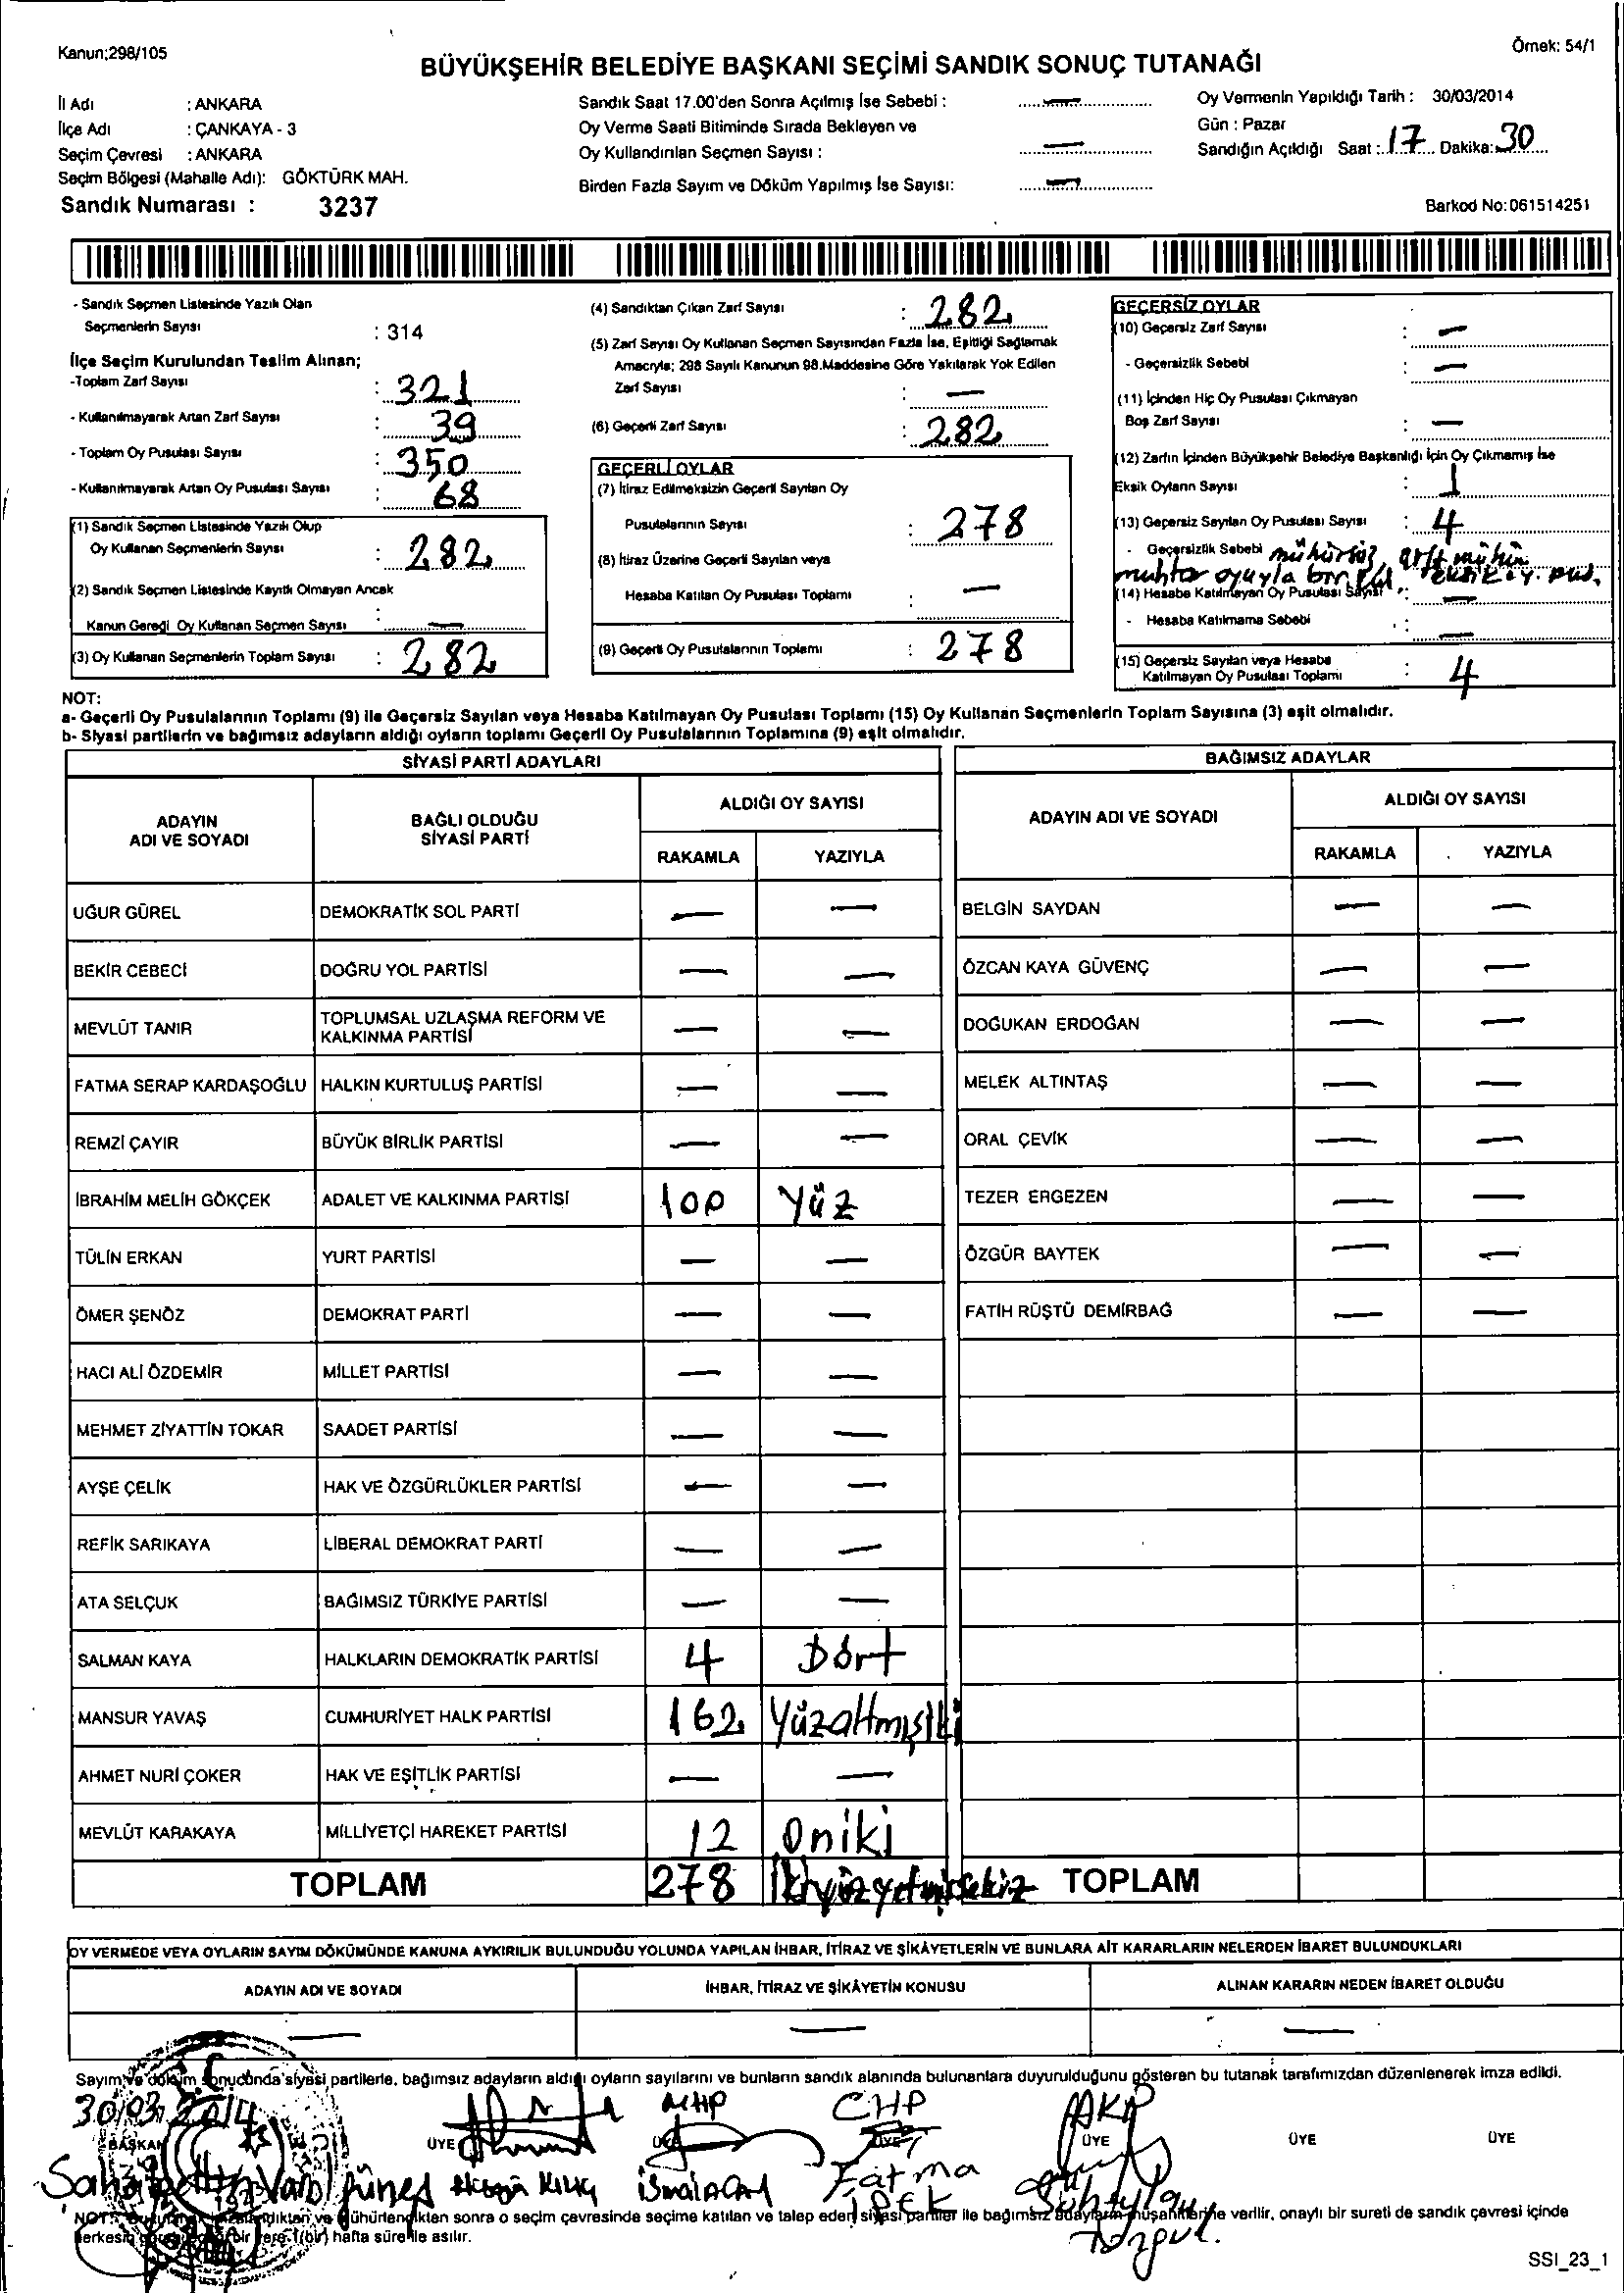 Kanun;298/105
Örnek: 54/1
BÜYÜKŞEHİR BELEDİYE BAŞKANI SEÇİMİ SANDIK SONUÇ TUTANAĞI
İl Adı : ANKARA
İlçe Adı : ÇANKAYA - 3
Seçim Çevresi : ANKARA
Seçim Bölgesi (Mahalle Adı): GÖKTÜRK MAH.
Sandık Numarası : 3237
Sandık Saat 17.00'den Sonra Açılmış İse Sebebi : —
Oy Verme Saati Bitiminde Sırada Bekleyen ve
Oy Kullandırılan Seçmen Sayısı : —
Birden Fazla Sayım ve Döküm Yapılmış İse Sayısı: —
Oy Vermenin Yapıldığı Tarih : 30/03/2014
Gün : Pazar
Sandığın Açıldığı Saat : 17 Dakika: 30
Barkod No:061514251
- Sandık Seçmen Listesinde Yazılı Olan
Seçmenlerin Sayısı : 314
İlçe Seçim Kurulundan Teslim Alınan;
-Toplam Zarf Sayısı : 321
- Kullanılmayarak Artan Zarf Sayısı : 39
- Toplam Oy Pusulası Sayısı : 350
- Kullanılmayarak Artan Oy Pusulası Sayısı : 68
(1) Sandık Seçmen Listesinde Yazılı Olup
Oy Kullanan Seçmenlerin Sayısı : 282
(2) Sandık Seçmen Listesinde Kayıtlı Olmayan Ancak
Kanun Gereği Oy Kullanan Seçmen Sayısı : —
(3) Oy Kullanan Seçmenlerin Toplam Sayısı : 282
(4) Sandıktan Çıkan Zarf Sayısı : 282
(5) Zarf Sayısı Oy Kullanan Seçmen Sayısından Fazla İse, Eşitliği Sağlamak
Amacıyla; 298 Sayılı Kanunun 98.Maddesine Göre Yakılarak Yok Edilen
Zarf Sayısı : —
(6) Geçerli Zarf Sayısı : 282
GEÇERLİ OYLAR
(7) İtiraz Edilmeksizin Geçerli Sayılan Oy
Pusulalarının Sayısı : 278
(8) İtiraz Üzerine Geçerli Sayılan veya
Hesaba Katılan Oy Pusulası Toplamı : —
(9) Geçerli Oy Pusulalarının Toplamı : 278
GEÇERSİZ OYLAR
(10) Geçersiz Zarf Sayısı : —
- Geçersizlik Sebebi : —
(11) İçinden Hiç Oy Pusulası Çıkmayan
Boş Zarf Sayısı : —
(12) Zarfın İçinden Büyükşehir Belediye Başkanlığı İçin Oy Çıkmamış İse
Eksik Oyların Sayısı : 1
(13) Geçersiz Sayılan Oy Pusulası Sayısı : 4
- Geçersizlik Sebebi mühürsüz, çift mühür
muhtar oyuyla eksik oy. pus.
(14) Hesaba Katılmayan Oy Pusulası Sayısı : —
- Hesaba Katılmama Sebebi : —
(15) Geçersiz Sayılan veya Hesaba
Katılmayan Oy Pusulası Toplamı : 4
NOT:
a- Geçerli Oy Pusulalarının Toplamı (9) ile Geçersiz Sayılan veya Hesaba Katılmayan Oy Pusulası Toplamı (15) Oy Kullanan Seçmenlerin Toplam Sayısına (3) eşit olmalıdır.
b- Siyasi partilerin ve bağımsız adayların aldığı oyların toplamı Geçerli Oy Pusulalarının Toplamına (9) eşit olmalıdır.
SİYASİ PARTİ ADAYLARI
ADAYIN ADI VE SOYADI
BAĞLI OLDUĞU SİYASİ PARTİ
ALDIĞI OY SAYISI
RAKAMLA YAZIYLA
UĞUR GÜREL DEMOKRATİK SOL PARTİ — —
BEKİR CEBECİ DOĞRU YOL PARTİSİ — —
MEVLÜT TANIR TOPLUMSAL UZLAŞMA REFORM VE KALKINMA PARTİSİ — —
FATMA SERAP KARDAŞOĞLU HALKIN KURTULUŞ PARTİSİ — —
REMZİ ÇAYIR BÜYÜK BİRLİK PARTİSİ — —
İBRAHİM MELİH GÖKÇEK ADALET VE KALKINMA PARTİSİ 100 Yüz
TÜLİN ERKAN YURT PARTİSİ — —
ÖMER ŞENÖZ DEMOKRAT PARTİ — —
HACI ALİ ÖZDEMİR MİLLET PARTİSİ — —
MEHMET ZİYATTİN TOKAR SAADET PARTİSİ — —
AYŞE ÇELİK HAK VE ÖZGÜRLÜKLER PARTİSİ — —
REFİK SARIKAYA LİBERAL DEMOKRAT PARTİ — —
ATA SELÇUK BAĞIMSIZ TÜRKİYE PARTİSİ — —
SALMAN KAYA HALKLARIN DEMOKRATİK PARTİSİ 4 Dört
MANSUR YAVAŞ CUMHURİYET HALK PARTİSİ 162 Yüzaltmışiki
AHMET NURİ ÇOKER HAK VE EŞİTLİK PARTİSİ — —
MEVLÜT KARAKAYA MİLLİYETÇİ HAREKET PARTİSİ 12 Oniki
TOPLAM 278 İkiyüzyetmişsekiz
BAĞIMSIZ ADAYLAR
ADAYIN ADI VE SOYADI
ALDIĞI OY SAYISI
RAKAMLA YAZIYLA
BELGİN SAYDAN — —
ÖZCAN KAYA GÜVENÇ — —
DOĞUKAN ERDOĞAN — —
MELEK ALTINTAŞ — —
ORAL ÇEVİK — —
TEZER ERGEZEN — —
ÖZGÜR BAYTEK — —
FATİH RÜŞTÜ DEMİRBAĞ — —
TOPLAM
OY VERMEDE VEYA OYLARIN SAYIM DÖKÜMÜNDE KANUNA AYKIRILIK BULUNDUĞU YOLUNDA YAPILAN İHBAR, İTİRAZ VE ŞİKÂYETLERİN VE BUNLARA AİT KARARLARIN NELERDEN İBARET BULUNDUKLARI
ADAYIN ADI VE SOYADI İHBAR, İTİRAZ VE ŞİKÂYETİN KONUSU ALINAN KARARIN NEDEN İBARET OLDUĞU
— — —
Sayım ve döküm sonucunda siyasi partilerle, bağımsız adayların aldığı oyların sayılarını ve bunların sandık alanında bulunanlara duyurulduğunu gösteren bu tutanak tarafımızdan düzenlenerek imza edildi.
30/03/2014
MHP CHP AKP
BAŞKAN ÜYE ÜYE ÜYE ÜYE ÜYE ÜYE
Fatma
İPEK
NOT: sonra o seçim çevresinde seçime katılan ve talep eden siyasi partiler ile bağımsız adayların müşahitlerine verilir, onaylı bir sureti de sandık çevresi içinde
herkesin bir yere 1(bir) hafta süre ile asılır.
SSI_23_1